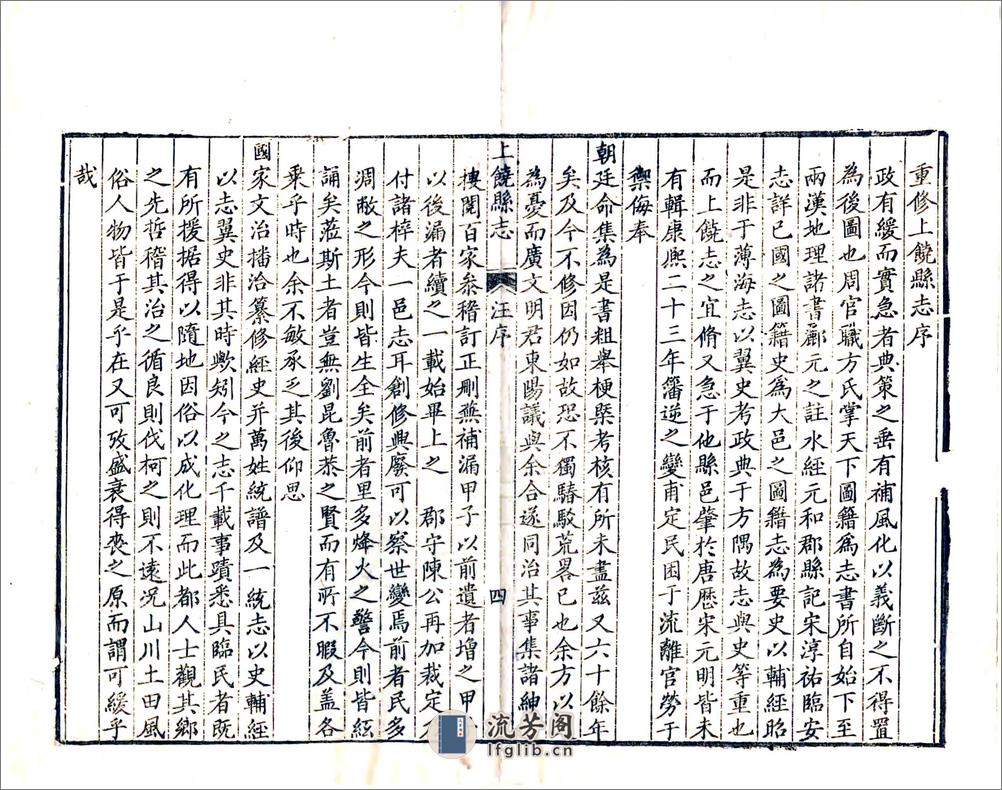 重修上饒縣志序
政有緩而實急者典策之垂有補風化以義斷之不得置
為後圖也周官職方氏掌天下圖籍為志書所自始下至
兩漢地理諸書酈元之註水經元和郡縣記宋淳祐臨安
志詳已國之圖籍史為大邑之圖籍志為要史以輔經昭
是非于薄海志以翼史考政典于方隅故志與史等重也
而上饒志之宜脩又急于他縣邑肇於唐歷宋元明皆未
有輯康熙二十三年藩逆之變甫定民困于流離官勞于
禦侮奉
朝廷命集為是書粗舉梗槩考核有所未盡茲又六十餘年
矣及今不修因仍如故恐不獨駸駁荒畧已也余方以
為憂而廣文明君東陽議與余合遂同治其事集諸紳
上饒縣志
汪序
四
摟閱百家叅稽訂正刪蕪補漏甲子以前遺者增之甲
以後漏者續之一載始畢上之 郡守陳公再加裁定
付諸梓夫一邑志耳創修興廢可以察世變焉前者民多
凋敝之形今則皆生全矣前者里多烽火之警今則皆絃
誦矣蒞斯土者豈無劉昆魯恭之賢而有所不暇及盖各
乘乎時也余不敏承乏其後仰思
國家文治播洽纂修經史并萬姓統譜及一統志以史輔經
以志翼史非其時歟矧今之志千載事蹟悉具臨民者既
有所援据得以隨地因俗以成化理而此都人士觀其鄉
之先哲稽其治之循良則伐柯之則不遠況山川土田風
俗人物皆于是乎在又可攷盛衰得喪之原而謂可緩乎
哉
流芳阁
lfglib.cn